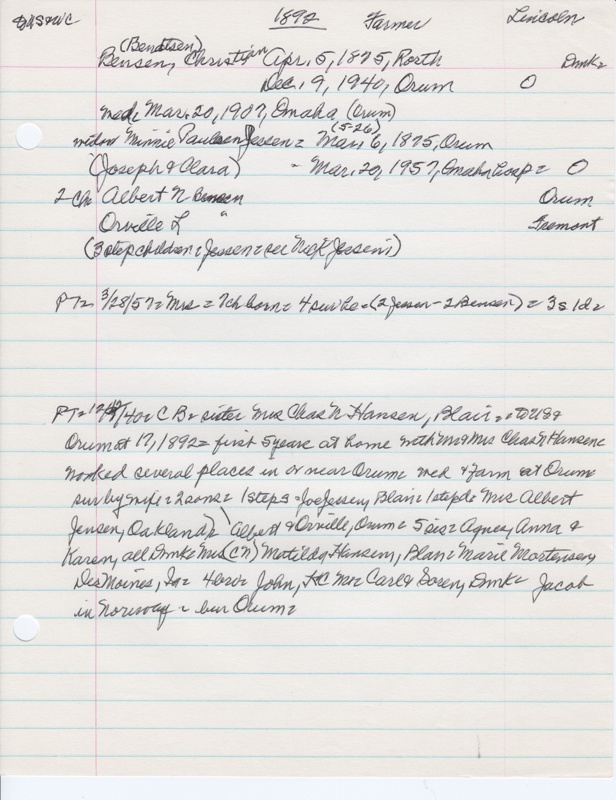 1892 Farmer Lincoln
(Bendtsen)
Bensen, Christian Apr. 5, 1875, Rorth Dmk=
Dec. 9, 1940, Orum O
med. Mar. 20, 1907, Omaha (Orum)
(5-26)
widow Minnie Paulsen Jessen = Mar. 6, 1875, Orum
(Joseph & Clara) - Mar. 20, 1957, Omaha Hosp = O
2 Ch Albert N Bensen Orum
Orville L " Fremont
(3 stepchildren = Jessen = see Nick Jessen's)
PT= 3/28/57 = Mrs = 7 ch born = 4 survive = (2 Jessen - 2 Bensen) = 3s 1d =
C B = sister Mrs Chas N Hansen, Blair = to US @
Orum at 17, 1892 = first 5 years at home with Mr & Mrs Chas N Hansen =
worked several places in or near Orum = med & farm at Orum
sur by wife = 2 sons = 1 steps = Joe Jessen, Blair = 1 stepd = Mrs Albert
Jensen, Oakland = Albert & Orville, Orum = 5 sis = Agnes, Anna &
Karen, all Dmk = Mrs (CN) Matilda Hansen, Blair = Marie Mortensen,
Des Moines, Ia = 4 bro = John, KC Mo = Carl & Soren, Dmk = Jacob
in Norway = bur Orum =